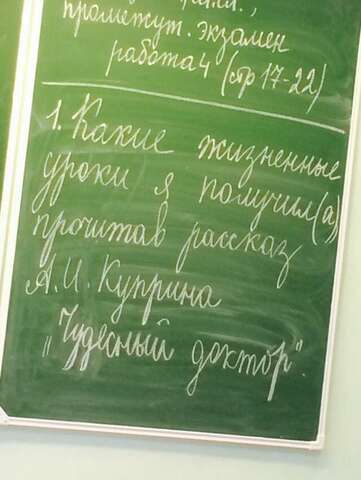 прометут. экзамен
работа 4 (стр 17-22)
1. Какие жизненные
уроки я получил(а)
прочитав рассказ
А.И. Куприна
"Чудесный доктор".